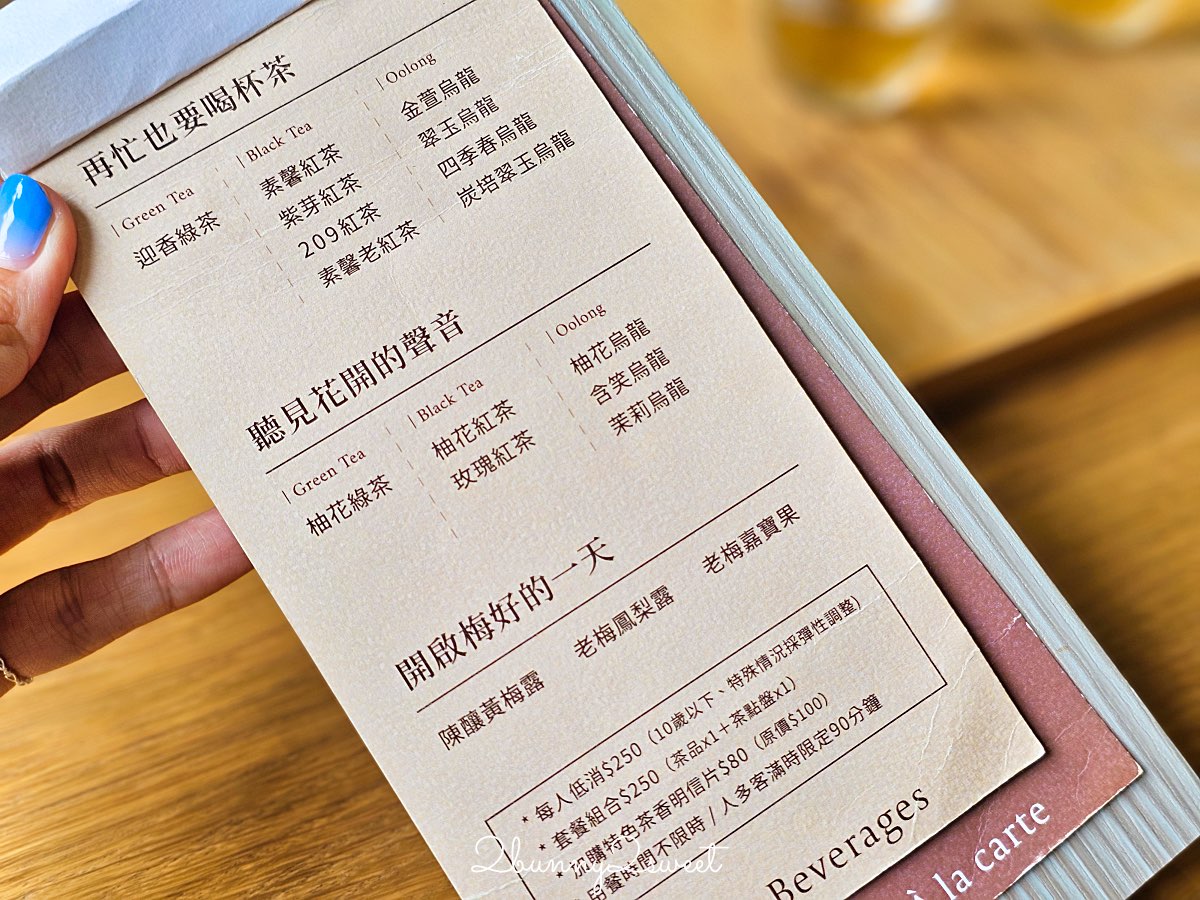 再忙也要喝杯茶
Green Tea
迎香綠茶
Black Tea
素馨紅茶
紫芽紅茶
209紅茶
素馨老紅茶
Oolong
金萱烏龍
翠玉烏龍
四季春烏龍
炭培翠玉烏龍
聽見花開的聲音
Green Tea
柚花綠茶
Black Tea
柚花紅茶
玫瑰紅茶
Oolong
柚花烏龍
含笑烏龍
茉莉烏龍
開啟梅好的一天
陳釀黃梅露
老梅鳳梨露
老梅嘉寶果
* 每人低消$250（10歲以下、特殊情況採彈性調整）
* 套餐組合$250（茶品x1＋茶點盤x1）
* 加購特色茶香明信片$80（原價$100）
用餐時間不限時 / 人多客滿時限定90分鐘
Beverages
À la carte
2bunny2sweet